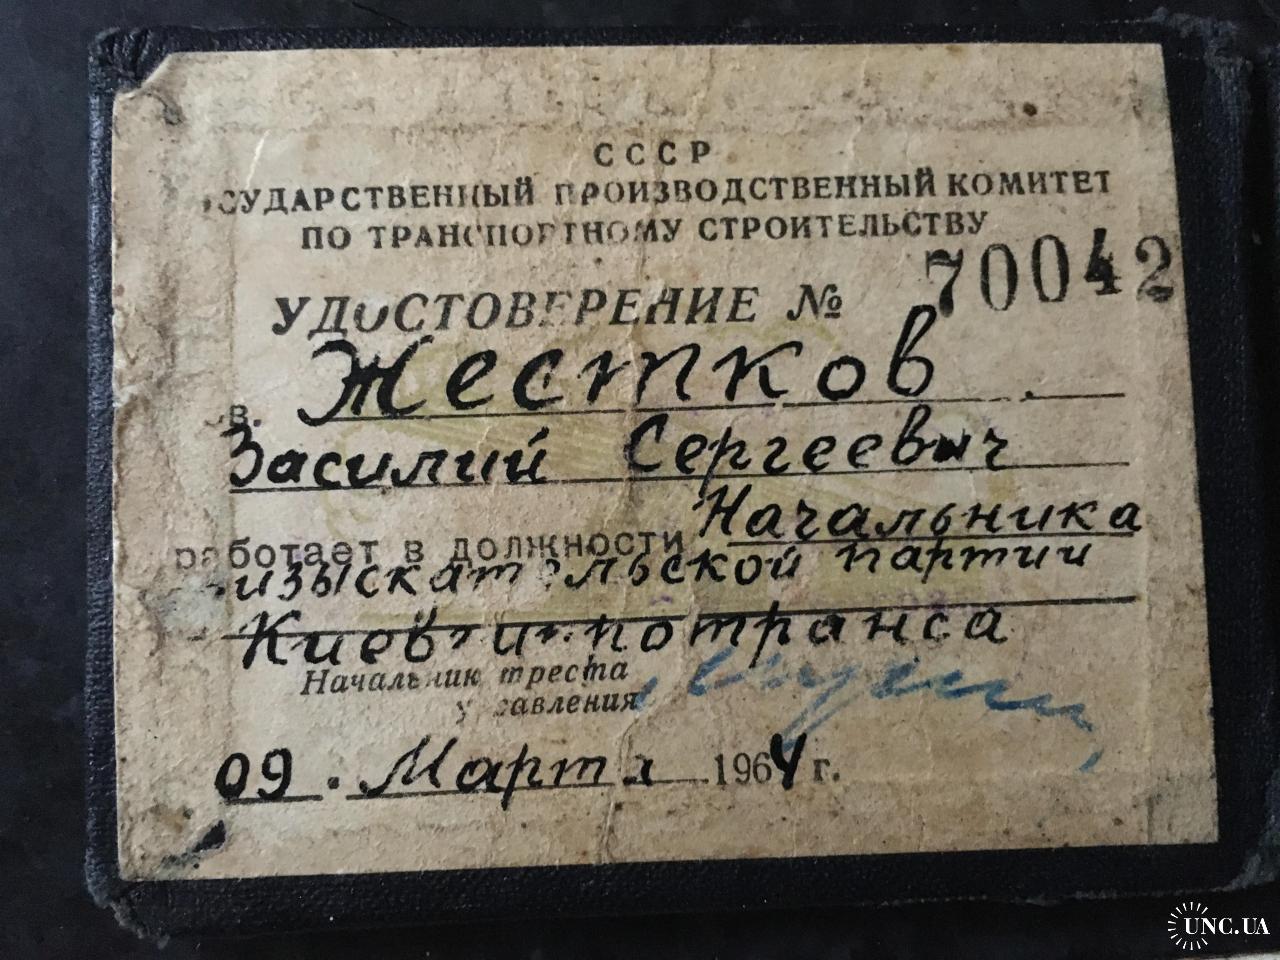 СССР
ГОСУДАРСТВЕННЫЙ ПРОИЗВОДСТВЕННЫЙ КОМИТЕТ
ПО ТРАНСПОРТНОМУ СТРОИТЕЛЬСТВУ
УДОСТОВЕРЕНИЕ № 70042
в. Жестков
Василий Сергеевич
работает в должности Начальника
изыскательской партии
Киевгипротранса
Начальник треста
управления
09. Марта 1964 г.
UNC.UA